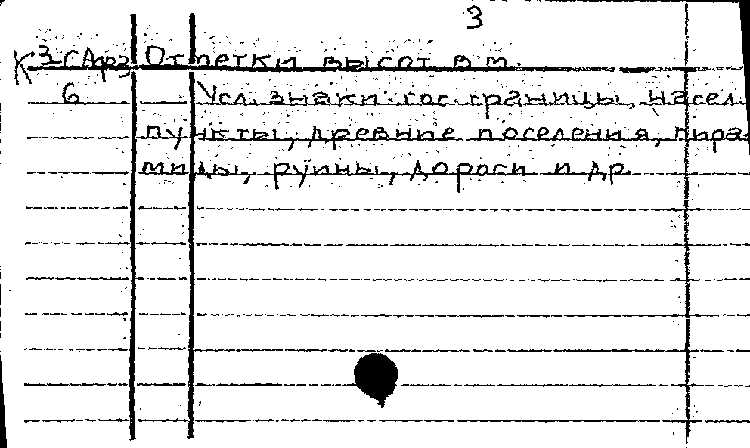 3
К 3-(Арз Отметки высот в м.
6 Усл. знаки: гос. границы, насел.
пункты, древние поселения, пира-
миды, руины, дороги и др.